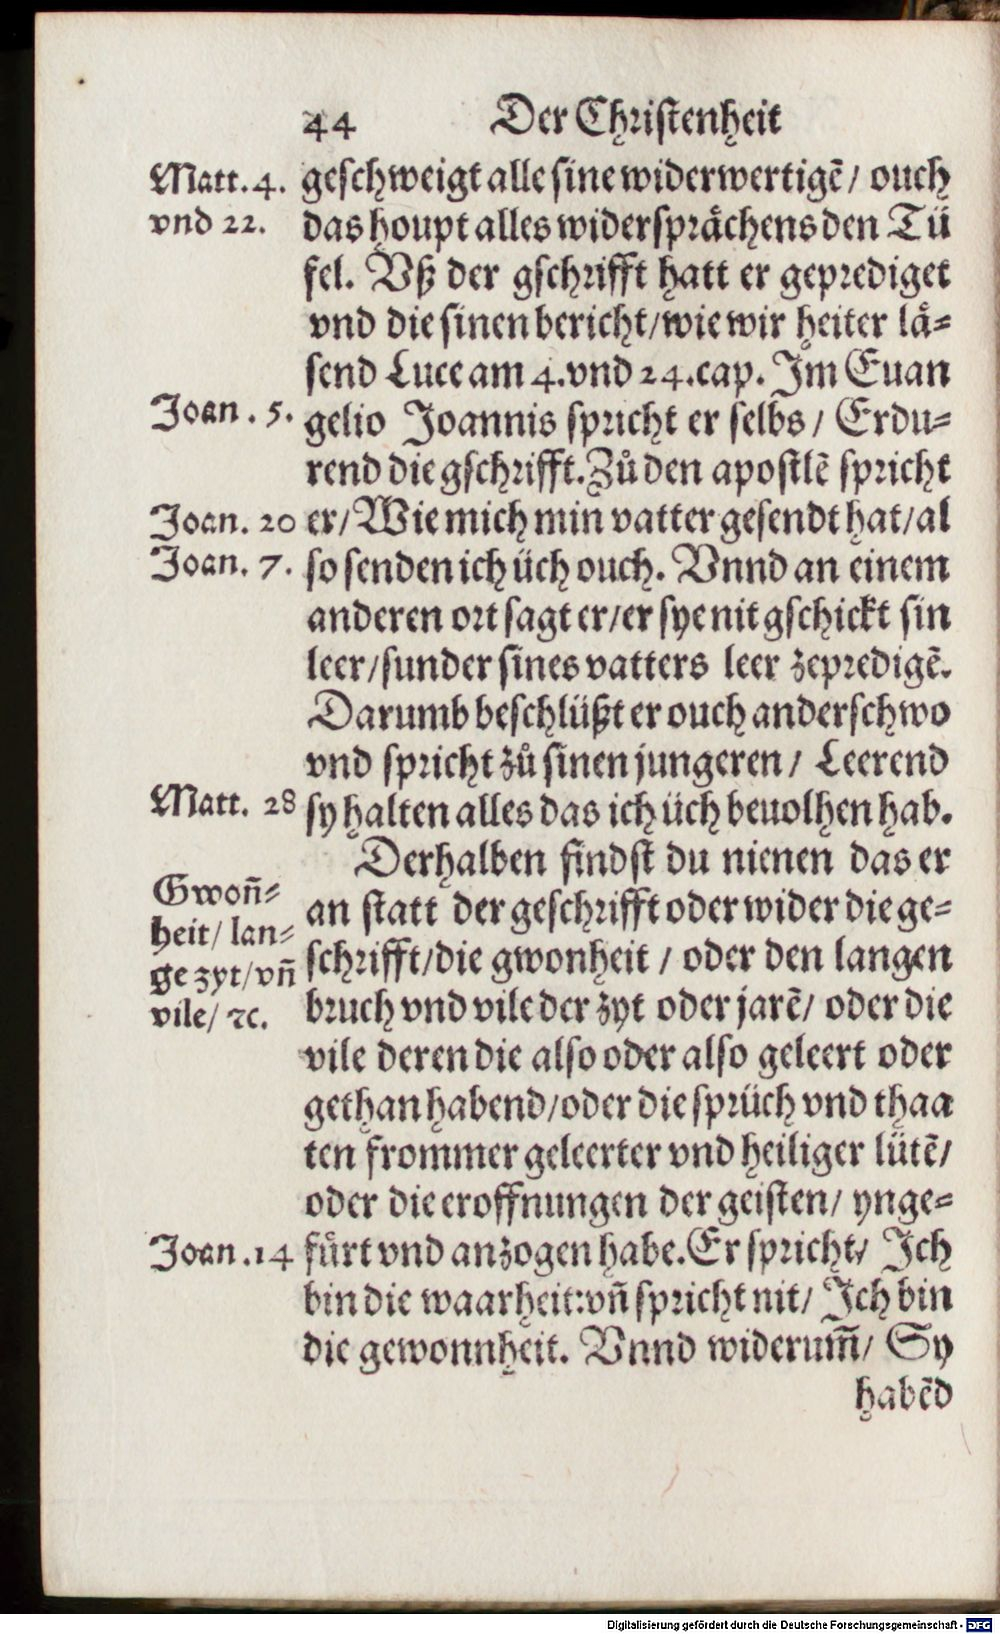 44 Der Christenheit
Matt. 4. geschweigt alle sine widerwertigē/ ouch
vnd 22. das houpt alles widersprächens den Tü
fel. Vß der gschrifft hatt er geprediget
vnd die sinen bericht/wie wir heiter lä-
send Luce am 4.vnd 24.cap. Im Euan
Joan. 5. gelio Joannis spricht er selbs/ Erdu-
rend die gschrifft.Zů den apostlē spricht
Joan. 20 er/Wie mich min vatter gesendt hat/al
Joan. 7. so senden ich üch ouch. Vnnd an einem
anderen ort sagt er/er sye nit gschickt sin
leer/sunder sines vatters leer zepredigē.
Darumb beschlüßt er ouch anderschwo
vnd spricht zů sinen jungeren/ Leerend
Matt. 28 sy halten alles das ich üch beuolhen hab.
Derhalben findst du nienen das er
Gwoñ- an statt der geschrifft oder wider die ge-
heit/ lan- schrifft/die gwonheit/ oder den langen
ge zyt/vñ bruch vnd vile der zyt oder jarē/ oder die
vile/ ꝛc. vile deren die also oder also geleert oder
gethan habend/oder die sprüch vnd thaa
ten frommer geleerter vnd heiliger lütē/
oder die eroffnungen der geisten/ ynge-
Joan.14 fürt vnd anzogen habe.Er spricht/ Ich
bin die waarheit:vñ spricht nit/ Ich bin
die gewonnheit. Vnnd widerum̄/ Sy
habēd
Digitalisierung gefördert durch die Deutsche Forschungsgemeinschaft - DFG